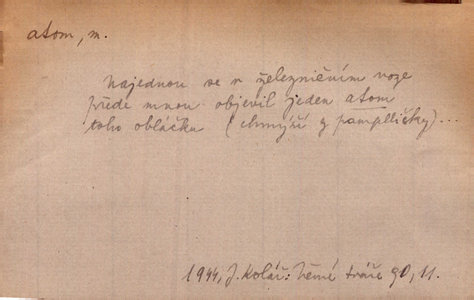 atom, m.
Najednou se v železničním voze
přede mnou objevil jeden atom
toho obláčku (chmýří z pampelišky)...
1944, J. Kolář: Němé tváře 90, 11.